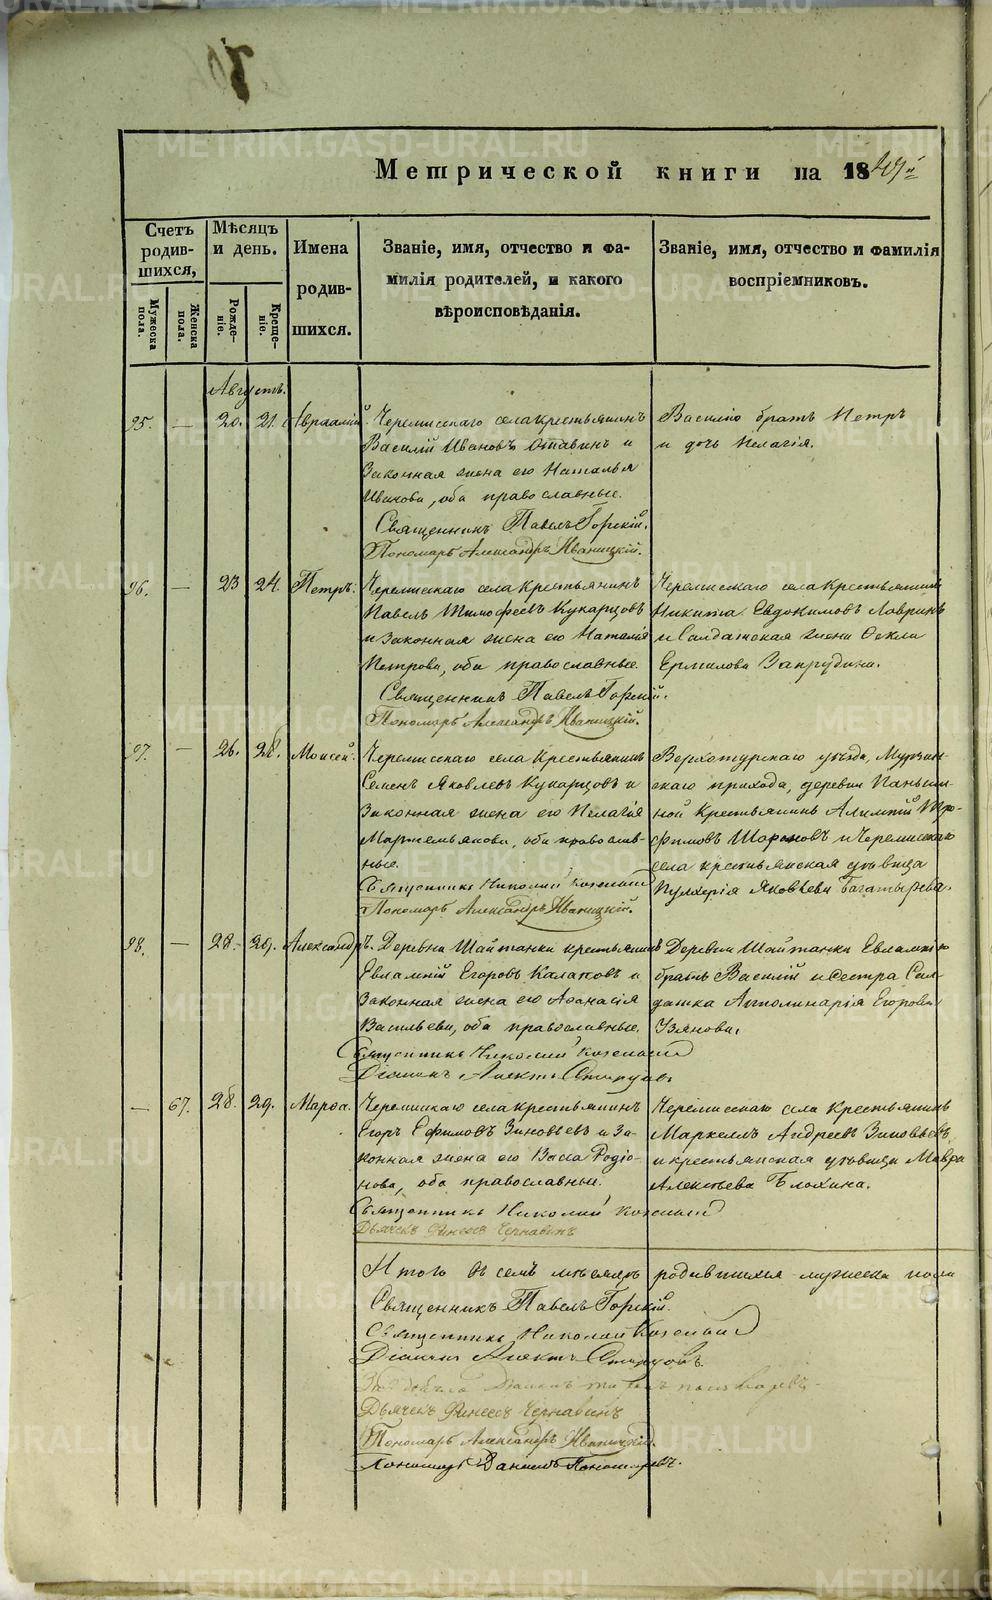 Метрической книги на 18
Счетъ родив-шихся,
Мѣсяцъ и день.
Имена родив-шихся.
Званіе, имя, отчество и фа-
милія родителей, и какого
вѣроисповѣданія.
Званіе, имя, отчество и фамилія
воспріемниковъ.
Мужеска пола.
Женска пола.
Рожде-ніе.
Креще-ніе.
Августъ.
95. — 20. 21. Авраамій.
Черемисскаго села крестьянинъ
Василій Ивановъ и
Законная жена его Наталья
Иванова, оба православные.
Священникъ Павелъ Горскій.
Пономарь Александръ Иваницкій.
Василію братъ Петръ
и дочь Пелагія.
96. — 23 24. Петръ.
Черемисскаго села Крестьянинъ
Павелъ Тимофеевъ Кукарцовъ
и Законная жена его Наталія
Петрова, оба православные.
Священникъ Павелъ Горскій.
Пономарь Александръ Иваницкій.
Черемисскаго села Крестьянинъ
Никита Евдокимовъ Лавринъ
и Солдатская жена Фекла
Ермилова Запрудина.
97. — 26. 28. Моисей.
Черемисскаго села Крестьянинъ
Семенъ Яковлевъ Кукарцовъ и
Законная жена его Пелагія
Мартемьянова, оба православ-
ные.
Священникъ Николай
Пономарь Александръ Иваницкій.
Верхотурскаго уѣзда, Мурзин-
скаго прихода, деревни Паньши-
ной Крестьянинъ Алимпій Тро-
фимовъ и Черемисскаго
села крестьянская дѣвица
Пулхерія Яковлева Богатырева.
98. — 28. 29. Александръ.
Деревни Шайтанки крестьянинъ
Евлампій Егоровъ и
Законная жена его Афанасія
Васильева, оба православные.
Священникъ Николай
Діаконъ
Деревни Шайтанки Евлампію
братъ Василій и Сестра Сол-
датка Апполинарія Егорова
— 67. 28. 29. Марфа.
Черемисскаго села крестьянинъ
Егоръ Ефимовъ Зиновьевъ и За-
конная жена его Васса Родіо-
нова, оба православные.
Священникъ Николай
Дьячекъ Финеесъ Чернавинъ
Черемисскаго села Крестьянинъ
Маркеллъ Андреевъ Зиновьевъ
и крестьянская дѣвица Мавра
Алексѣева Блохина.
Итого въ семъ мѣсяцѣ родившихся мужеска пола
Священникъ Павелъ Горскій.
Священникъ Николай
Діаконъ
Дьячекъ Финеесъ Чернавинъ
Пономарь Александръ Иваницкій.
Пономарь Даніилъ Пономаревъ.
METRIKI.GASO-URAL.RU